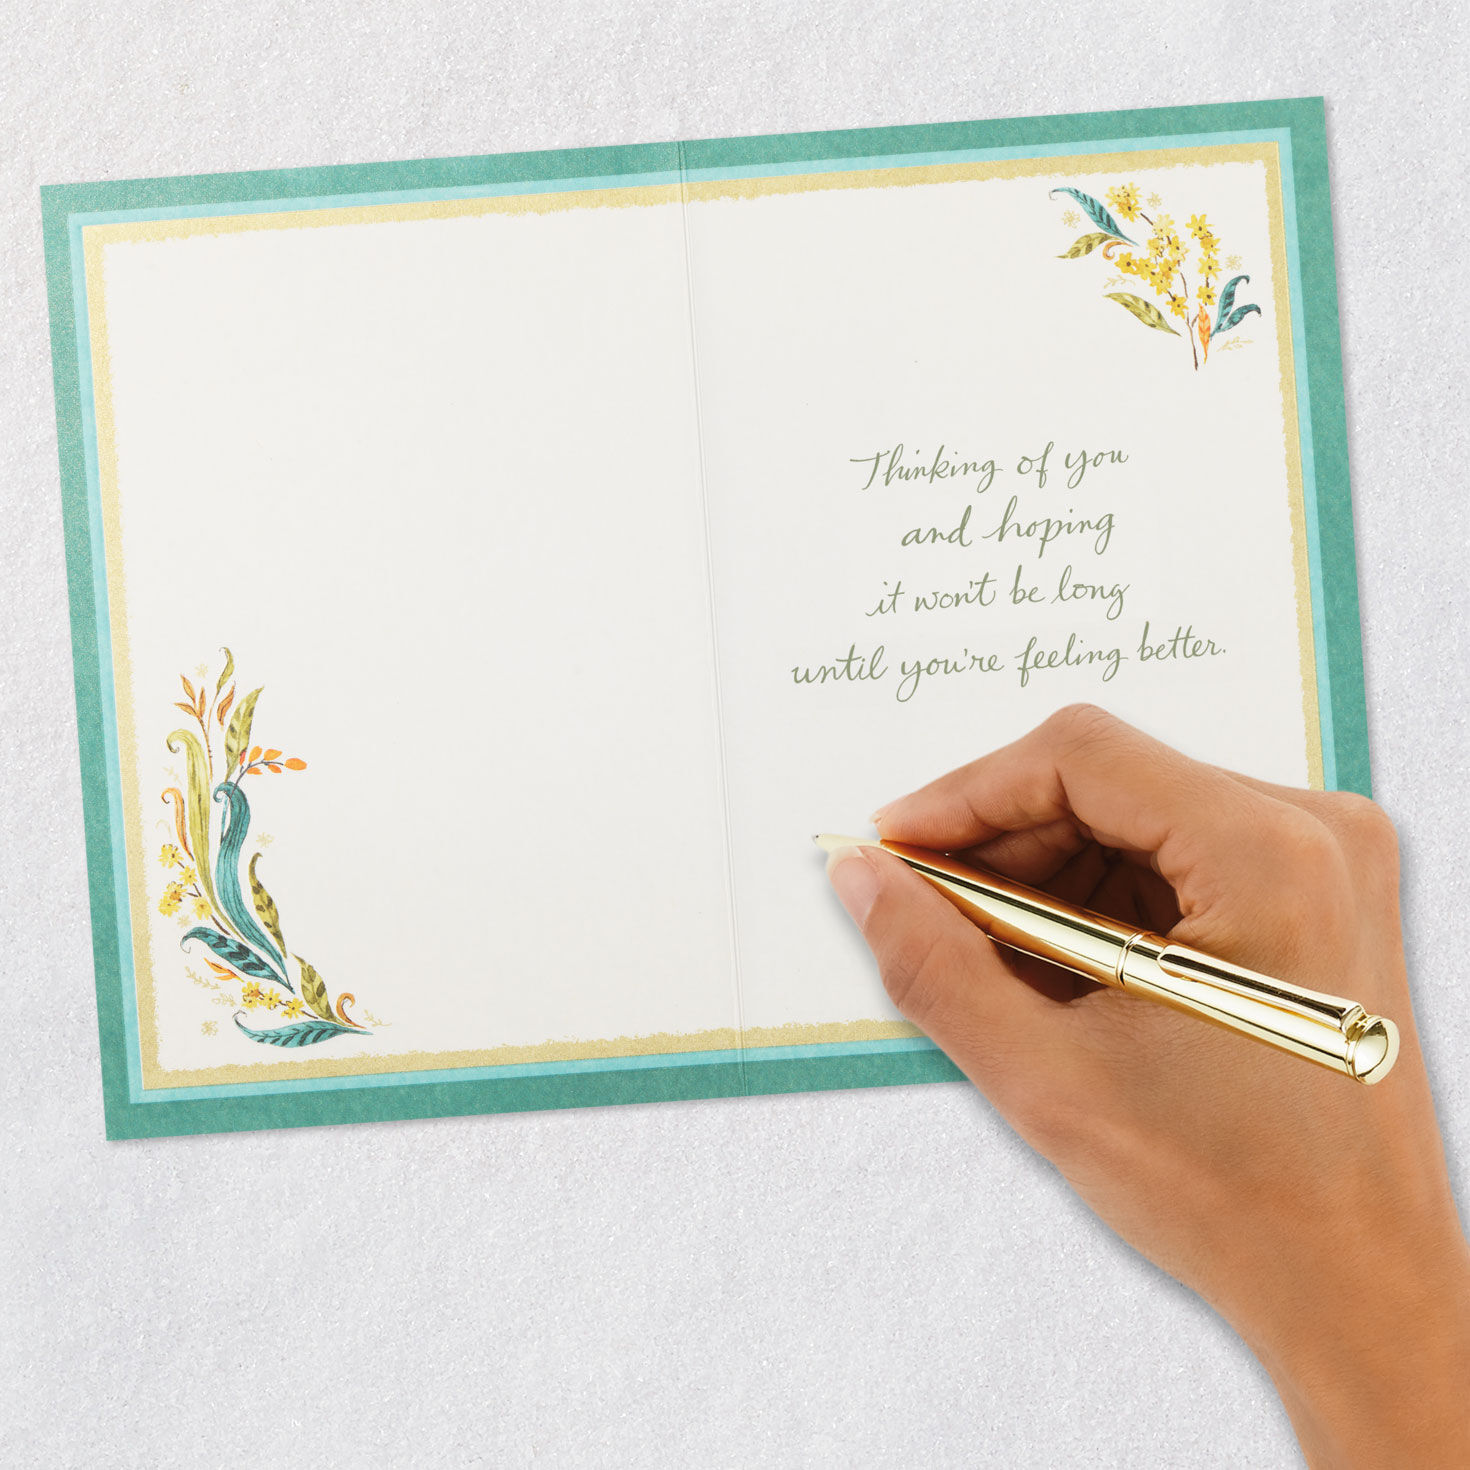 Thinking of you
and hoping
it won't be long
until you're feeling better.